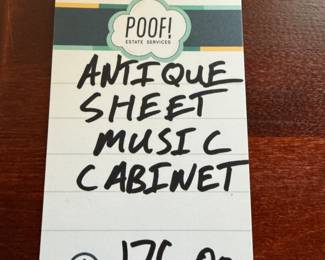 POOF!
ESTATE SERVICES
ANTIQUE
SHEET
MUSIC
CABINET